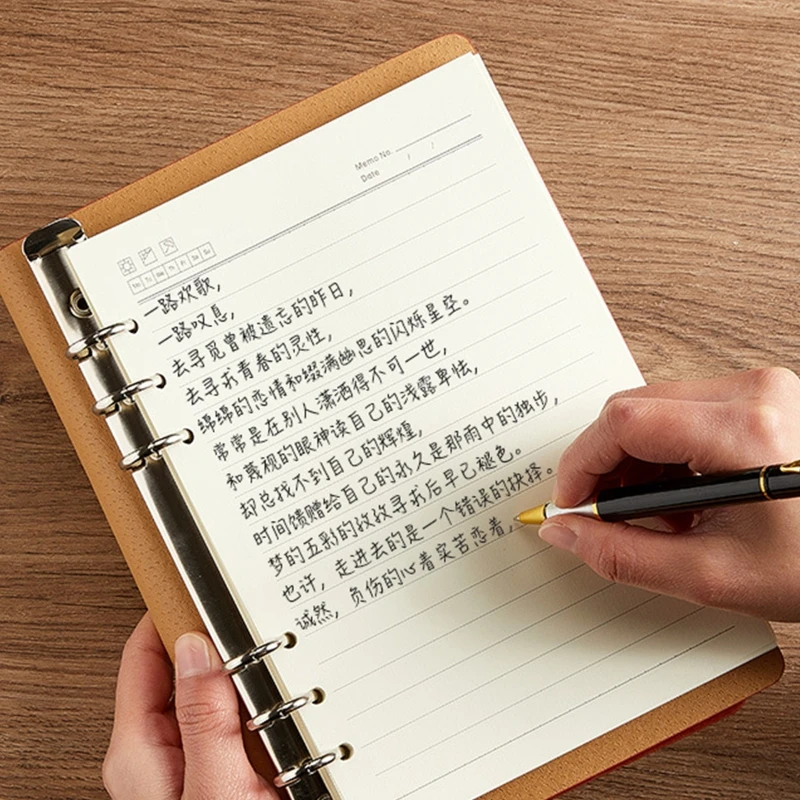 Memo No.
Date / /
Mo Tu We Th Fr Sa Su
一路欢歌,
一路叹息,
去寻觅曾被遗忘的昨日,
去寻求青春的灵性,
绵绵的恋情和缀满幽思的闪烁星空。
常常是在别人潇洒得不可一世,
和蔑视的眼神读自己的浅露卑怯,
却总找不到自己的辉煌,
时间馈赠给自己的永久是那雨中的独步,
梦的五彩的孜孜寻求后早已褪色。
也许, 走进去的是一个错误的抉择。
诚然, 负伤的心着实苦恋着,